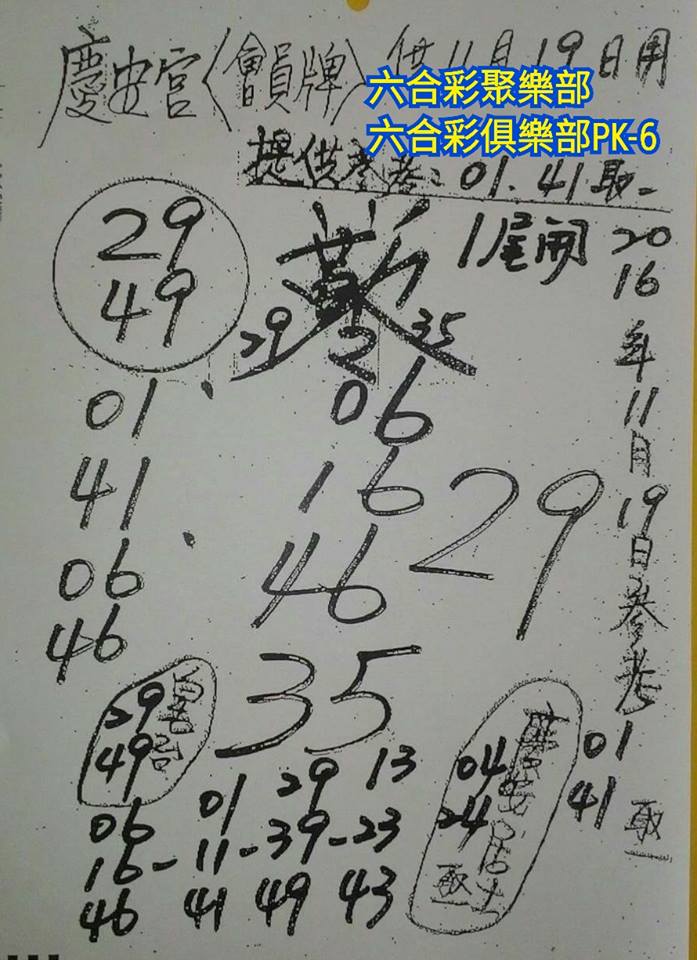 慶安宮〈會員牌〉供11月19日用
六合彩聚樂部
六合彩俱樂部PK-6
提供參考：01.41取一
1尾開
2016年11月19日參考
29
49
29 2 35
01
41
06
46
06
16
46
29
35
29
49
01 29 13
06
16-11-39-23
46 41 49 43
04
24
取一
01
41
取一